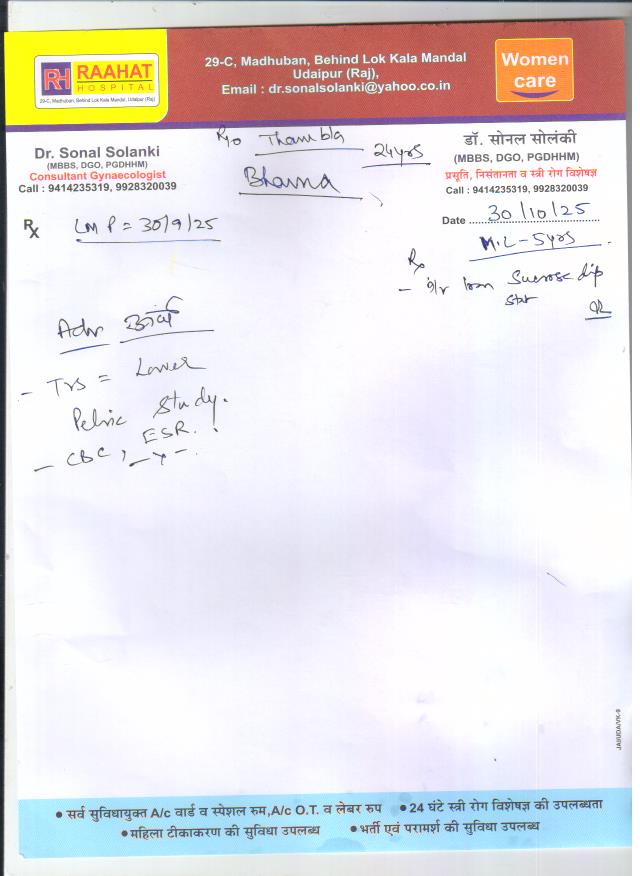 RH RAAHAT
HOSPITAL
29-C, Madhuban, Behind Lok Kala Mandal, Udaipur (Raj)
29-C, Madhuban, Behind Lok Kala Mandal
Udaipur (Raj),
Email : dr.sonalsolanki@yahoo.co.in
Women
care
Dr. Sonal Solanki
(MBBS, DGO, PGDHHM)
Consultant Gynaecologist
Call : 9414235319, 9928320039
R/o Thambla
24yrs
Bhavna
डॉ. सोनल सोलंकी
(MBBS, DGO, PGDHHM)
प्रसूति, निसंतानता व स्त्री रोग विशेषज्ञ
Call : 9414235319, 9928320039
Date 30/10/25
M.L - 5yrs
Rx LMP = 30/9/25
Rx
- Iron Sucrose dip
stat
Adv
- TVS = Lower
Pelvic Study.
- CBC, ESR.
JABUDA/VK-9
• सर्व सुविधायुक्त A/c वार्ड व स्पेशल रुम,A/c O.T. व लेबर रुप • 24 घंटे स्त्री रोग विशेषज्ञ की उपलब्धता
• महिला टीकाकरण की सुविधा उपलब्ध • भर्ती एवं परामर्श की सुविधा उपलब्ध